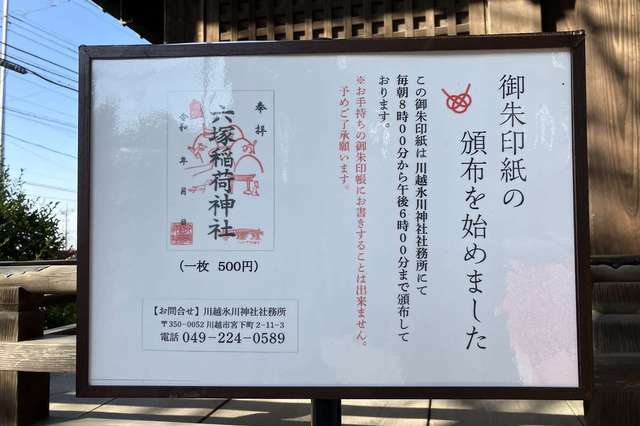 御朱印紙の
頒布を始めました
この御朱印紙は川越氷川神社社務所にて
毎朝8時00分から午後6時00分まで頒布して
おります。
※お手持ちの御朱印帳にお書きすることは出来ません。
予めご了承願います。
奉拝
六塚稲荷神社
令和 年 月 日
(一枚 500円)
【お問合せ】川越氷川神社社務所
〒350-0052 川越市宮下町2-11-3
電話 049-224-0589